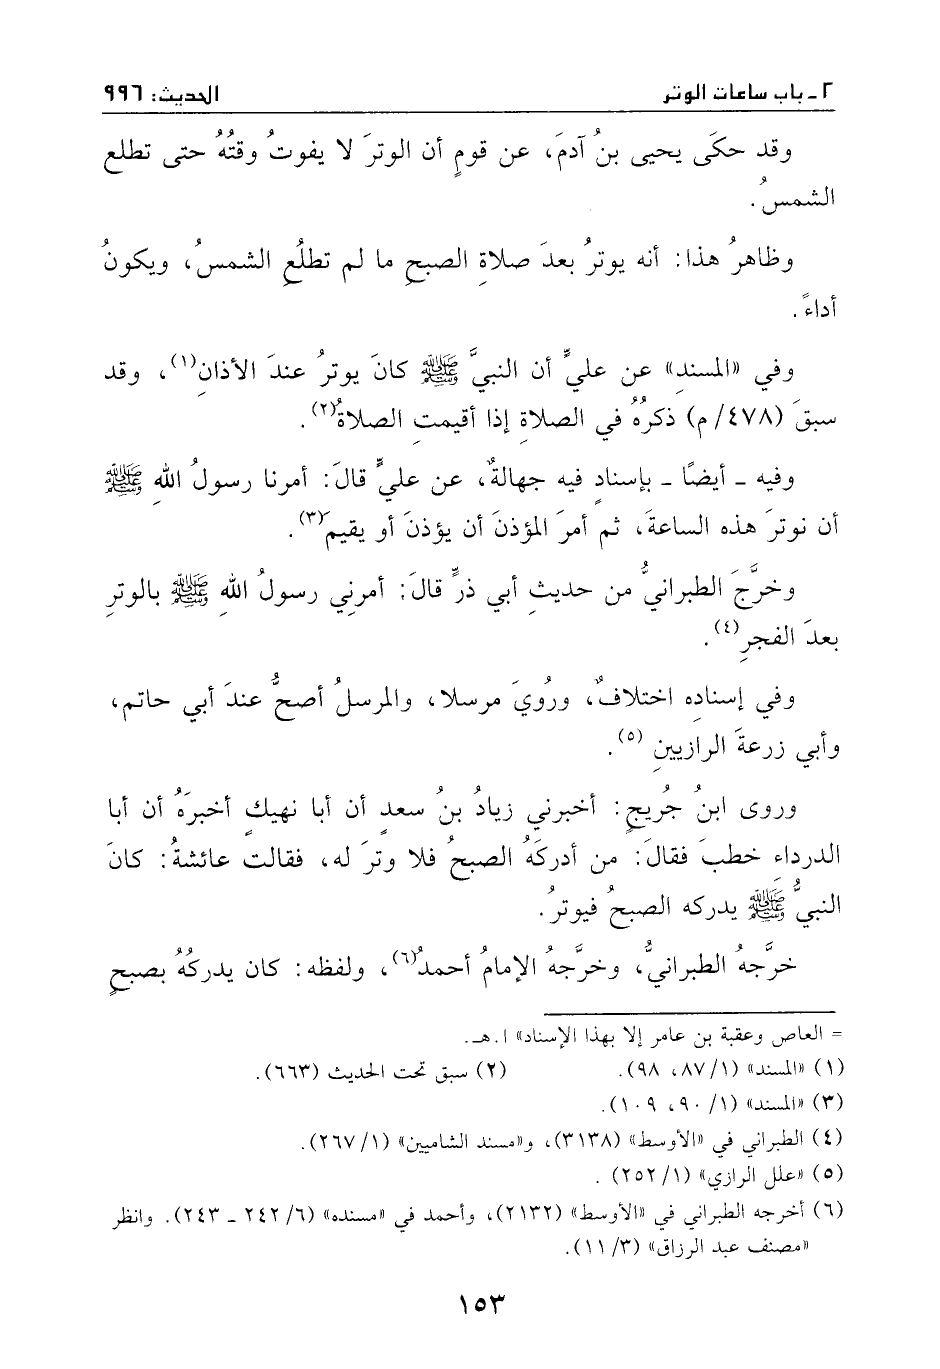 ٢ - باب ساعات الوتر
الحديث: ٩٩٦
وقد حكَى يحيى بنُ آدمَ، عن قومٍ أن الوترَ لا يفوتُ وقتُهُ حتى تطلع
الشمسُ.
وظاهرُ هذا: أنه يوترُ بعدَ صلاةِ الصبحِ ما لم تطلُعِ الشمسُ، ويكونُ
أداءً.
وفي «المسندِ» عن عليٍّ أن النبيَّ ﷺ كانَ يوترُ عندَ الأذانِ(١)، وقد
سبقَ (٤٧٨/ م) ذكرُهُ في الصلاةِ إذا أقيمتِ الصلاةُ(٢).
وفيه - أيضًا - بإسنادٍ فيه جهالةٌ، عن عليٍّ قالَ: أمرنا رسولُ اللهِ ﷺ
أن نوترَ هذه الساعةَ، ثم أمرَ المؤذنَ أن يؤذنَ أو يقيمَ(٣).
وخرَّجَ الطبرانيُّ من حديثِ أبي ذرٍّ قالَ: أمرنِي رسولُ اللهِ ﷺ بالوترِ
بعدَ الفجرِ(٤).
وفي إسنادِه اختلافٌ، ورُويَ مرسلا، والمرسلُ أصحُّ عندَ أبي حاتم،
وأبي زرعةَ الرازيينِ (٥).
وروى ابنُ جُريجٍ: أخبرني زيادُ بنُ سعدٍ أن أبا نهيكٍ أخبرَهُ أن أبا
الدرداء خطبَ فقالَ: من أدركَهُ الصبحُ فلا وترَ له، فقالتْ عائشةُ: كانَ
النبيُّ ﷺ يدركه الصبحُ فيوترُ.
خرَّجهُ الطبرانيُّ، وخرَّجهُ الإمامُ أحمدُ(٦)، ولفظه: كان يدركُهُ بصبحٍ
= العاص وعقبة بن عامر إلا بهذا الإسناد» ا.هـ.
(١) «المسند» (١/ ٨٧، ٩٨). (٢) سبق تحت الحديث (٦٦٣).
(٣) «المسند» (١/ ٩٠، ١٠٩).
(٤) الطبراني في «الأوسط» (٣١٣٨)، و«مسند الشاميين» (١/ ٢٦٧).
(٥) «علل الرازي» (١/ ٢٥٢) .
(٦) أخرجه الطبراني في «الأوسط» (٢١٣٢)، وأحمد في «مسنده» (٦/ ٢٤٢ - ٢٤٣). وانظر
«مصنف عبد الرزاق» (٣/ ١١).
١٥٣